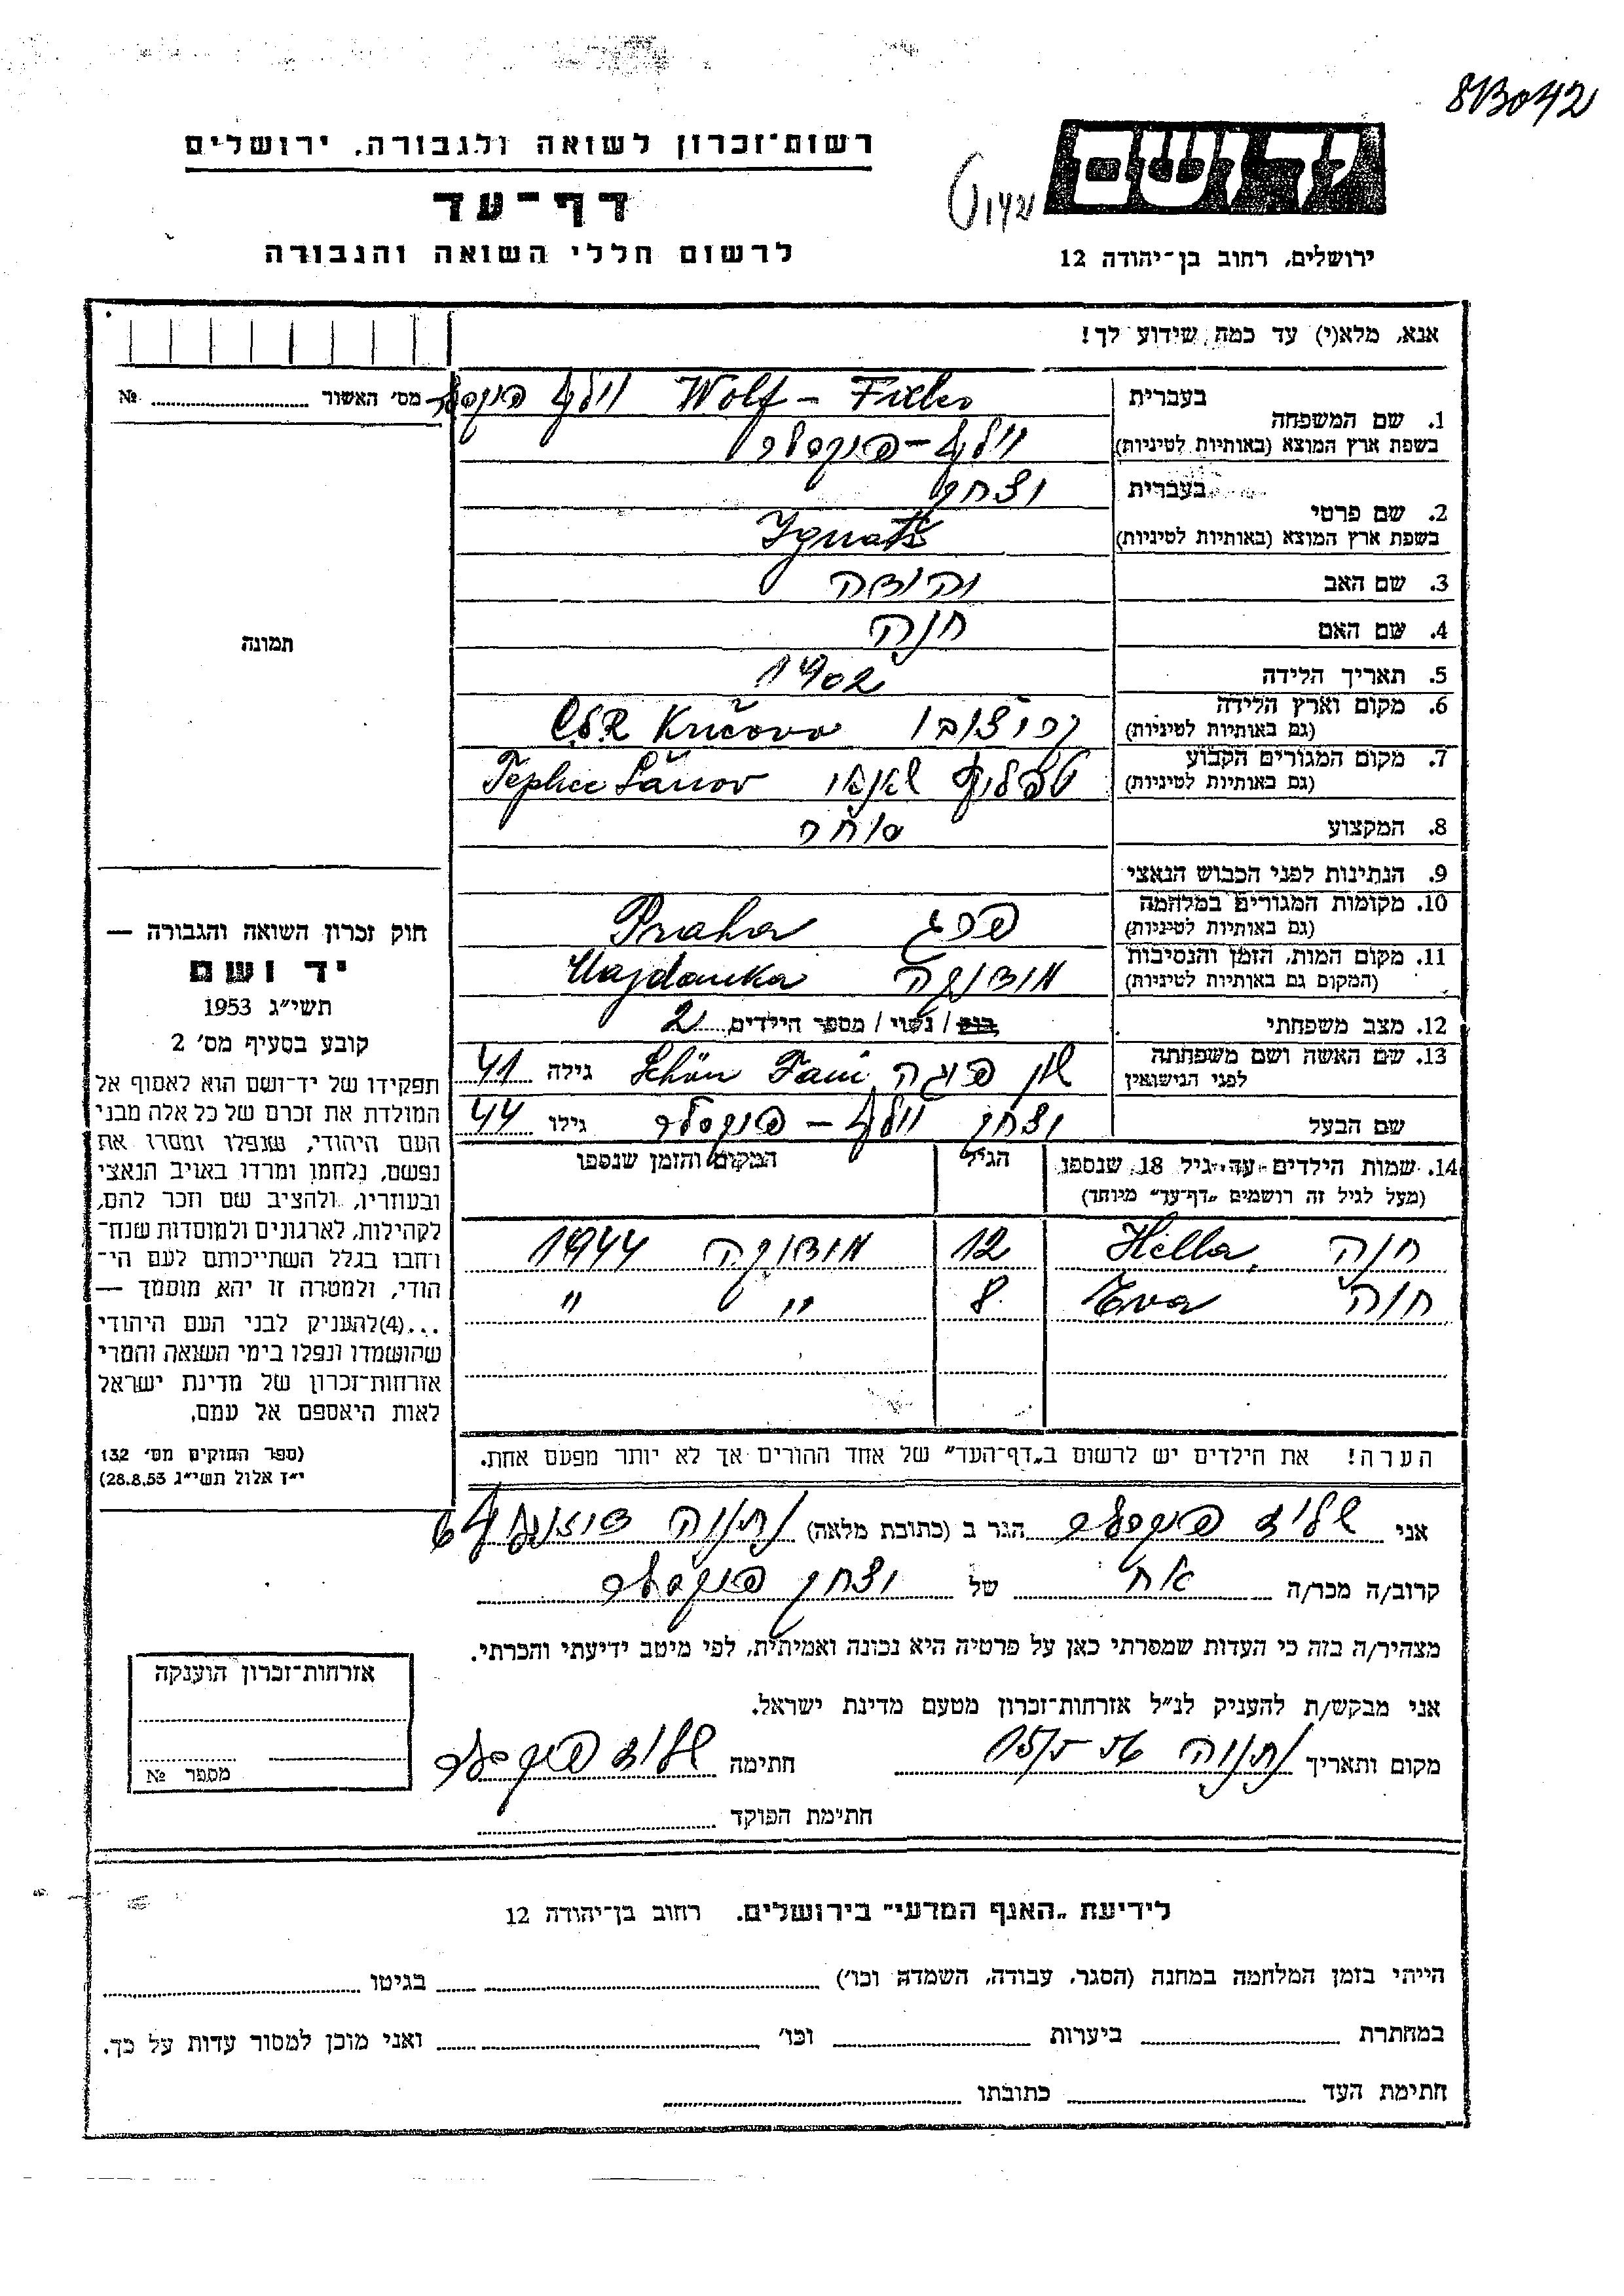 רשות־זכרון לשואה ולגבורה, ירושלים
דף־עד
לרשום חללי השואה והגבורה
ידושם
ירושלים, רחוב בן־יהודה 12
אנא, מלא(י) עד כמה שידוע לך!
מס׳ האשור №
1. שם המשפחה
בעברית
Wolf -
בשפת ארץ המוצא (באותיות לטיניות)
2. שם פרטי
בעברית יצחק
בשפת ארץ המוצא (באותיות לטיניות)
3. שם האב יהודה
4. שם האם חנה
5. תאריך הלידה 1902
6. מקום וארץ הלידה
(גם באותיות לטיניות) ČSR Kričovo
7. מקום המגורים הקבוע
(גם באותיות לטיניות) Teplice Šanov
8. המקצוע סוחר
9. הנתינות לפני הכבוש הנאצי
10. מקומות המגורים במלחמה
(גם באותיות לטיניות) פרג Praha
11. מקום המות, הזמן והנסיבות
(המקום גם באותיות לטיניות) Majdanka
12. מצב משפחתי רווק / נשוי / מספר הילדים 2
13. שם האשה ושם משפחתה
לפני הנישואין שן Schön Fani גילה 41
שם הבעל יצחק גילו 44
14. שמות הילדים עד גיל 18 שנספו הגיל המקום והזמן שנספו
(מעל לגיל זה רושמים „דף־עד״ מיוחד)
חנה Hella 12 1944
חוה Eva 8 " "
הערה! את הילדים יש לרשום ב„דף־העד״ של אחד ההורים אך לא יותר מפעם אחת.
תמונה
חוק זכרון השואה והגבורה —
יד ושם
תשי״ג 1953
קובע בסעיף מס׳ 2
תפקידו של יד־ושם הוא לאסוף אל
המולדת את זכרם של כל אלה מבני
העם היהודי, שנפלו ומסרו את
נפשם, נלחמו ומרדו באויב הנאצי
ובעוזריו, ולהציב שם וזכר להם,
לקהילות, לארגונים ולמוסדות שנח־
רחבו בגלל השתייכותם לעם הי־
הודי, ולמטרה זו יהא מוסמך —
...(4)להעניק לבני העם היהודי
שהושמדו ונפלו בימי השואה והמרי
אזרחות־זכרון של מדינת ישראל
לאות היאספם אל עמם.
(ספר החוקים מס׳ 132
י״ז אלול תשי״ג 28.8.53)
אני הגר ב (כתובת מלאה) נתניה
קרוב/ה מכר/ה אח של יצחק
מצהיר/ה בזה כי העדות שמסרתי כאן על פרטיה היא נכונה ואמיתית, לפי מיטב ידיעתי והכרתי.
אני מבקש/ת להעניק לנ״ל אזרחות־זכרון מטעם מדינת ישראל.
מקום ותאריך נתניה חתימה
חתימת הפוקד
אזרחות־זכרון הוענקה
מספר №
לידיעת „האגף המדעי״ בירושלים, רחוב בן־יהודה 12
הייתי בזמן המלחמה במחנה (הסגר, עבודה, השמדה וכו׳) בגיטו
במחתרת ביערות וכו׳ ואני מוכן למסור עדות על כך.
חתימת העד כתובתו